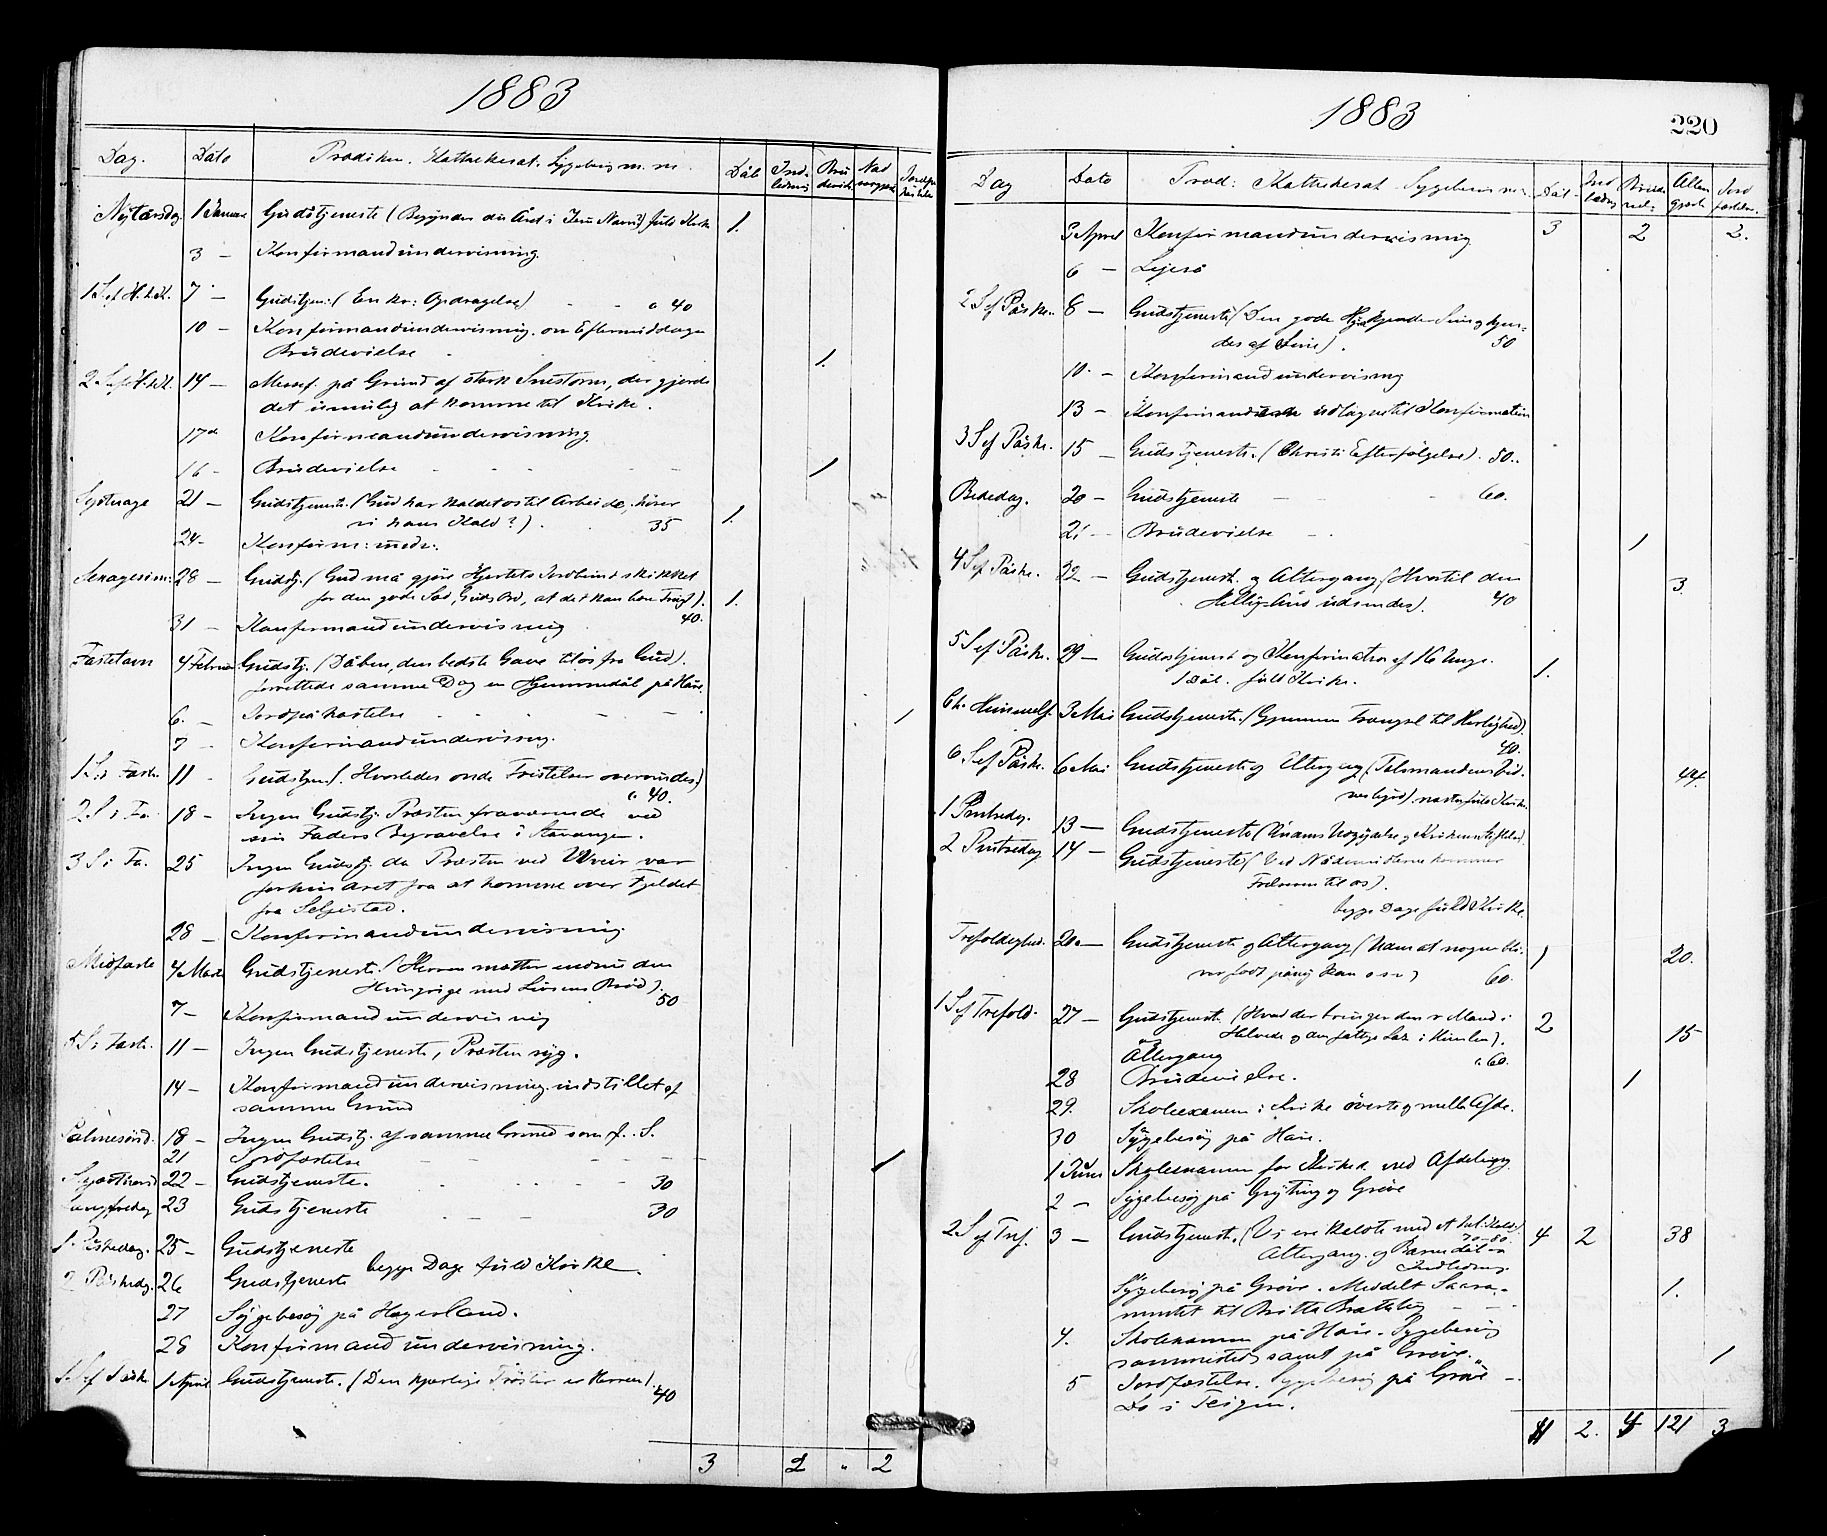 1883
Dag. Dato Prædiken. Kathekesat. Sygebesøg m. m. Dåb Ind- ledning Bru devielse Nad
Nytårsdag 1 Januar Gudstjeneste (Begynder du Året i Jesu Navn?) fuld Kirke 1.
3 — Konfirmandundervisning.
1 S. ef. H. 3 K. 7 — Gudstjen: (En kr: Opdragelse) - - c 40
10 — Konfirmandundervisning. om Eftermiddagen
Brudevielse 1.
2 S. ef. H. 3 K. 14 — Messef. på Grund af stærk Snestorm, der gjorde
det umulig at komme til Kirke.
17de Konfirmandundervisning.
16 - Brudevielse 1
21 — Gudstjeneste. (Gud har kaldet os til Arbeide, hører
vi hans Kald?). 35 1.
24 - Konfirm: unde:
Sexagesim: 28 — Gudstj. (Gud må gjøre Hjertets Jordbund skikket
for den gode Sæd, Guds Ord, at det kan bære Frugt). 1.
40.
31 — Konfirmandundervisning
Fastelavn 4 Februar Gudstj. (Dåben, den bedste Gave til os fra Gud).
forrettede samme Dag en Hjemmedåb på Hare.
6. — Jordpåkastelse 1
7 — Konfirmandundervisng.
1 S. i Faste 11 - Gudstjen. (Hvorledes onde Fristelser overvindes.)
c 40.
2 S. i Fa. 18 - Ingen Gudstj. Præsten fraværende ved
sin Faders Begravelse i Stavanger.
3 S. i Fa. 25 Ingen Gudstj. da Præsten ved Uveir var
forhindret fra at komme over Fjeldet
fra Seljestad.
28 — Konfirmandundervisning.
Midfaste 4 Marts Gudstjeneste. (Herren mætter endnu den
Hungrige med Livsens Brød). 50
7 — Konfirmandundervisnig
5 S. i Faste. 11 — Ingen Gudstjeneste, Præsten syg.
14 — Konfirmandundervisning indstillet af
samme Grund
Palmesønd. 18 — Ingen Gudstj. af samme Grund som f. S.
21 Jordfæstelse 1
22 — Gudstjeneste. 30
Langfredag 23 Gudstjeneste 30
1. Påskedag. 25 — Gudstjeneste
begge Dage fuld Kirke.
2 Påskedg. 26 Gudstjeneste
27 Sygebesøg på Hagerland.
28 Konfirmandundervisning.
1 S. ef Påske 1 April Gudstjeneste. (Den kjærlige Trøster er Herren). 40
3 2 " 2
1883 220
Dag Dato Præd: Kathekesat Sygebesøg m: Dåb Ind ledng Brude viel: Alter gang Jord fæstelse.
3 April Konfirmandundervisning 3 2 2.
6 —
2 S ef Påske. 8 — Gudstjeneste (Den gode Hyrde kjender Sine og kjen-
des af Sine). 50
10. — Konfirmandundervisng
13 — Konfirmanderne udtagne til Konfirmation
3 S ef Påske. 15 — Gudstjeneste. (Christi Efterfølgelse). 50.
Bededag. 20 — Gudstjeneste 60.
21 — Brudevielse 1
4 S ef Påske. 22 — Gudstjenest. og Altergang (Hvortil den
Helligånd udsendes). 40 3.
5 S ef Påske. 29 — Gudstjenest og Konfirmation af 16 Unge.
1 Dåb. fuld Kirke. 1.
Ch. Himmelf. 3 Mai Gudstjeneste. (Gjennem Trængsel til Herlighed).
40.
6 S ef Påske. 6 Mai Gudstjeneste og Altergang (Talsmandens Vid-
nesbyrd) næsten fuld Kirke. 44.
1 Pintsedg. 13 — Gudstjeneste
2 Pintsedag 14 — Gudstjeneste (Ved Nådemidlerne kommer
Frelseren til os).
begge Dage fuld Kirke.
Trefoldighed. 20 — Gudstjeneste og Altergang (Uden at nogen bli-
ver født påny kan o s v) 60. 1 20.
1 S ef Trefold. 27 — Gudstjenest. (Hvad der bringer den r. Mand i
Helvede og den fattige Laz. i Himlen). 2 15
Altergang c 60.
28 Brudevielse. 1
29. Skoleexamen i Kirke øverste og mell. Afde.
30 Sygebesøg på Hare.
1 Juni Skoleexamen for Kirked. ned Afdelingg
2 — Sygebesøg på Grytng og Grøve
2 S ef Tref. 3 — Gudstjenest. (Vi ere kaldte med et Kald) 4 2 38
70-80.
Altergang. og Barnedåb
Indledng.
Sygebesøg på Grøve. Meddelt Sacra-
mentet til Britta Brattebø 1.
4. Skolexamen på Hare. Sygebesøg
sammested samt på Grøve.
5 Jordfæstelse. Sygebesøg på Grøve 1
Do i Teigen.
11 2. 4 121 3